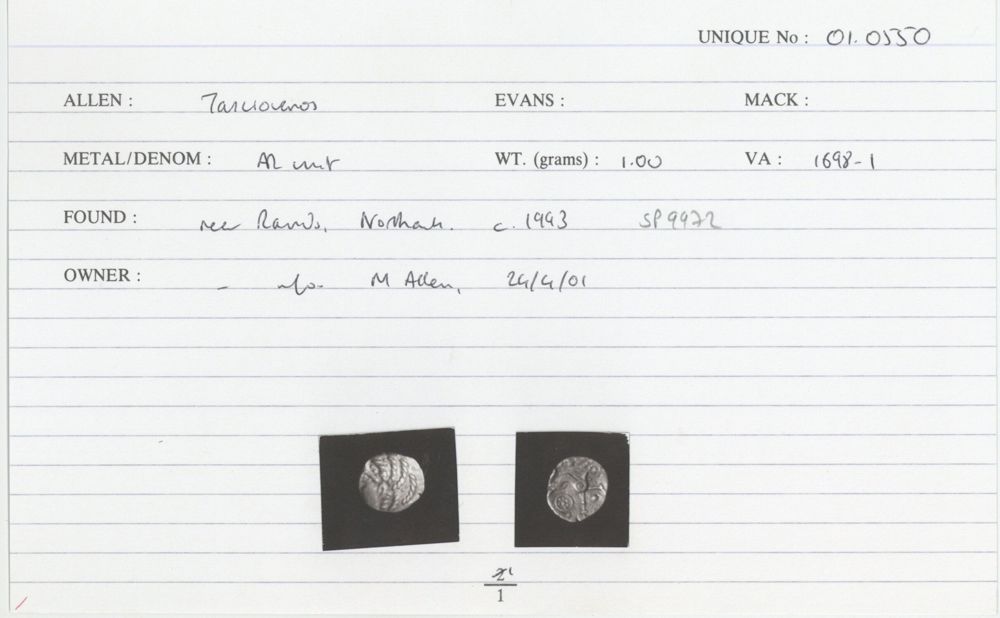 UNIQUE No : 01.0550
ALLEN : Tasciovanos EVANS : MACK :
METAL/DENOM : AR unit WT. (grams) : 1.00 VA : 1698-1
FOUND : near Raunds, Northants. c. 1993 SP9972
OWNER : - M Allen, 24/4/01
1